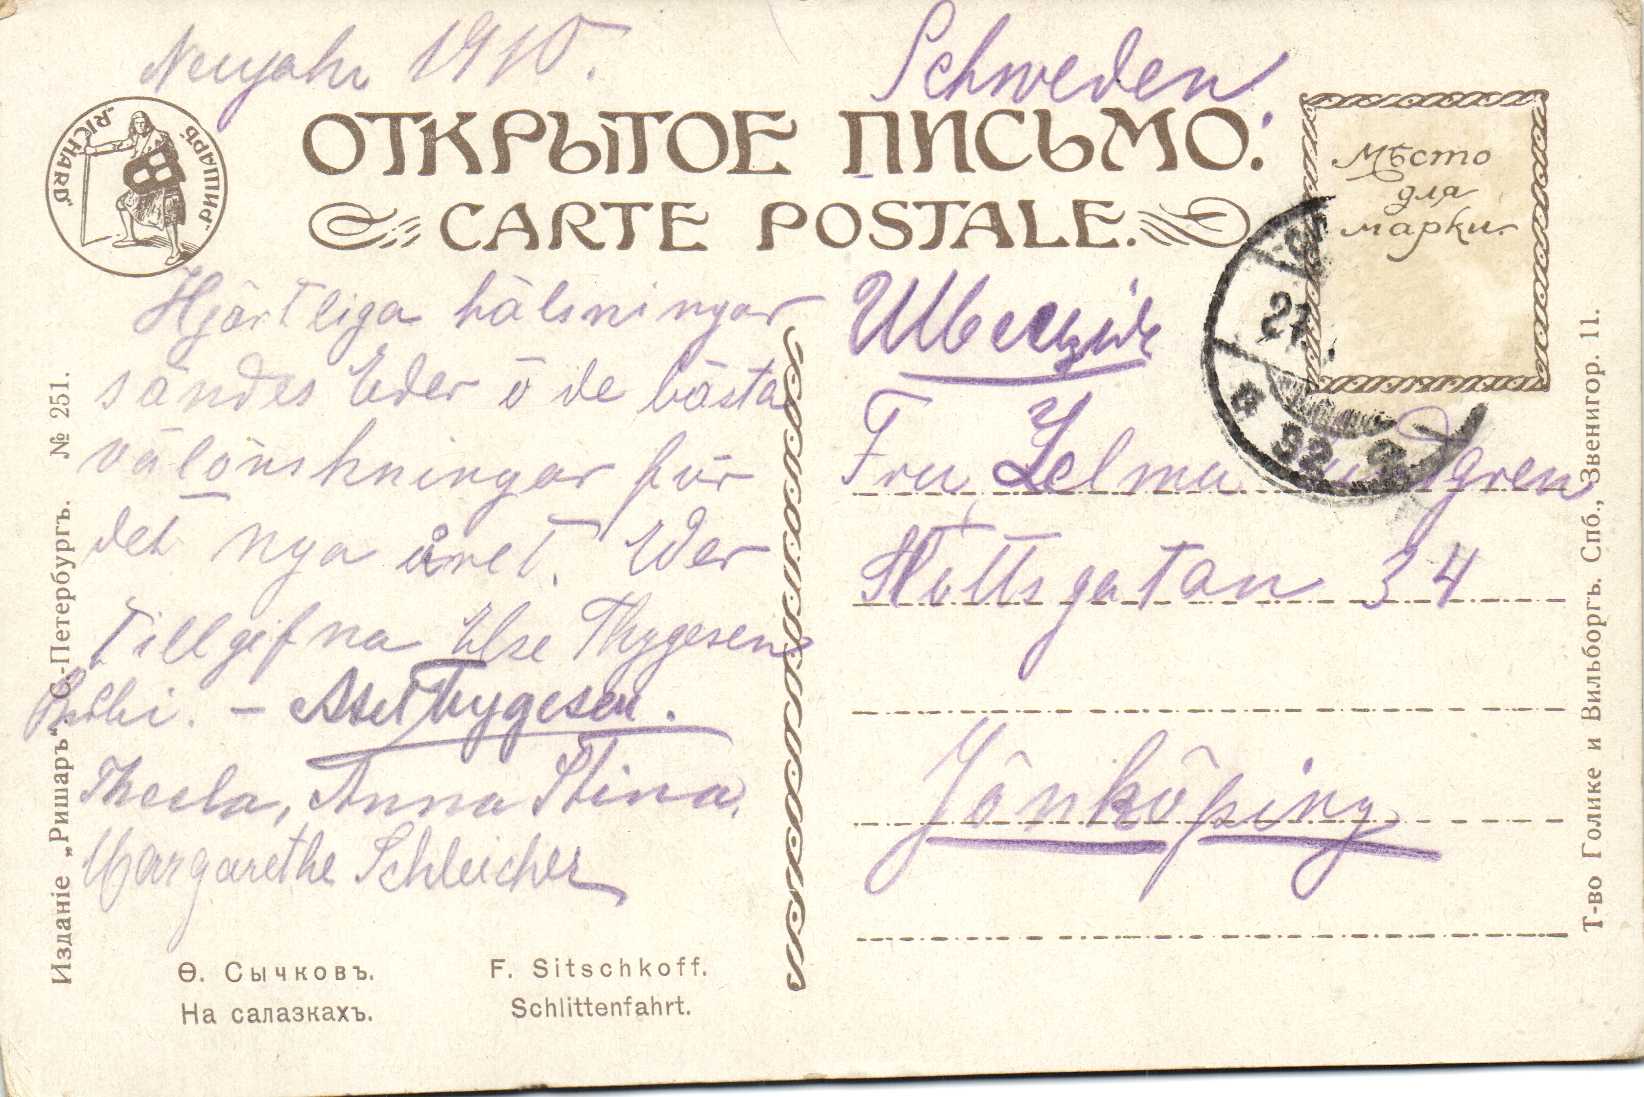 Neujahr 1910.
Schweden.
"RICHARD"
"РИШАРЪ"
ОТКРЫТОЕ ПИСЬМО.
CARTE POSTALE.
Мѣсто
для
марки.
Hjärtliga hälsningar
sändes Eder ö de bästa
välönskningar för
det nya året. Eder
tillgifna Else Thygesen
– Axel Thygesen.
Thecla, Anna Stina,
Margarethe Schleicher
Швецiя
Fru Selma
Slottsgatan 34
Jönköping
Ѳ. Сычковъ.
На салазкахъ.
F. Sitschkoff.
Schlittenfahrt.
Изданіе „Ришаръ" С.-Петербургъ. № 251.
Т-во Голике и Вильборгъ. Спб., Звенигор. 11.